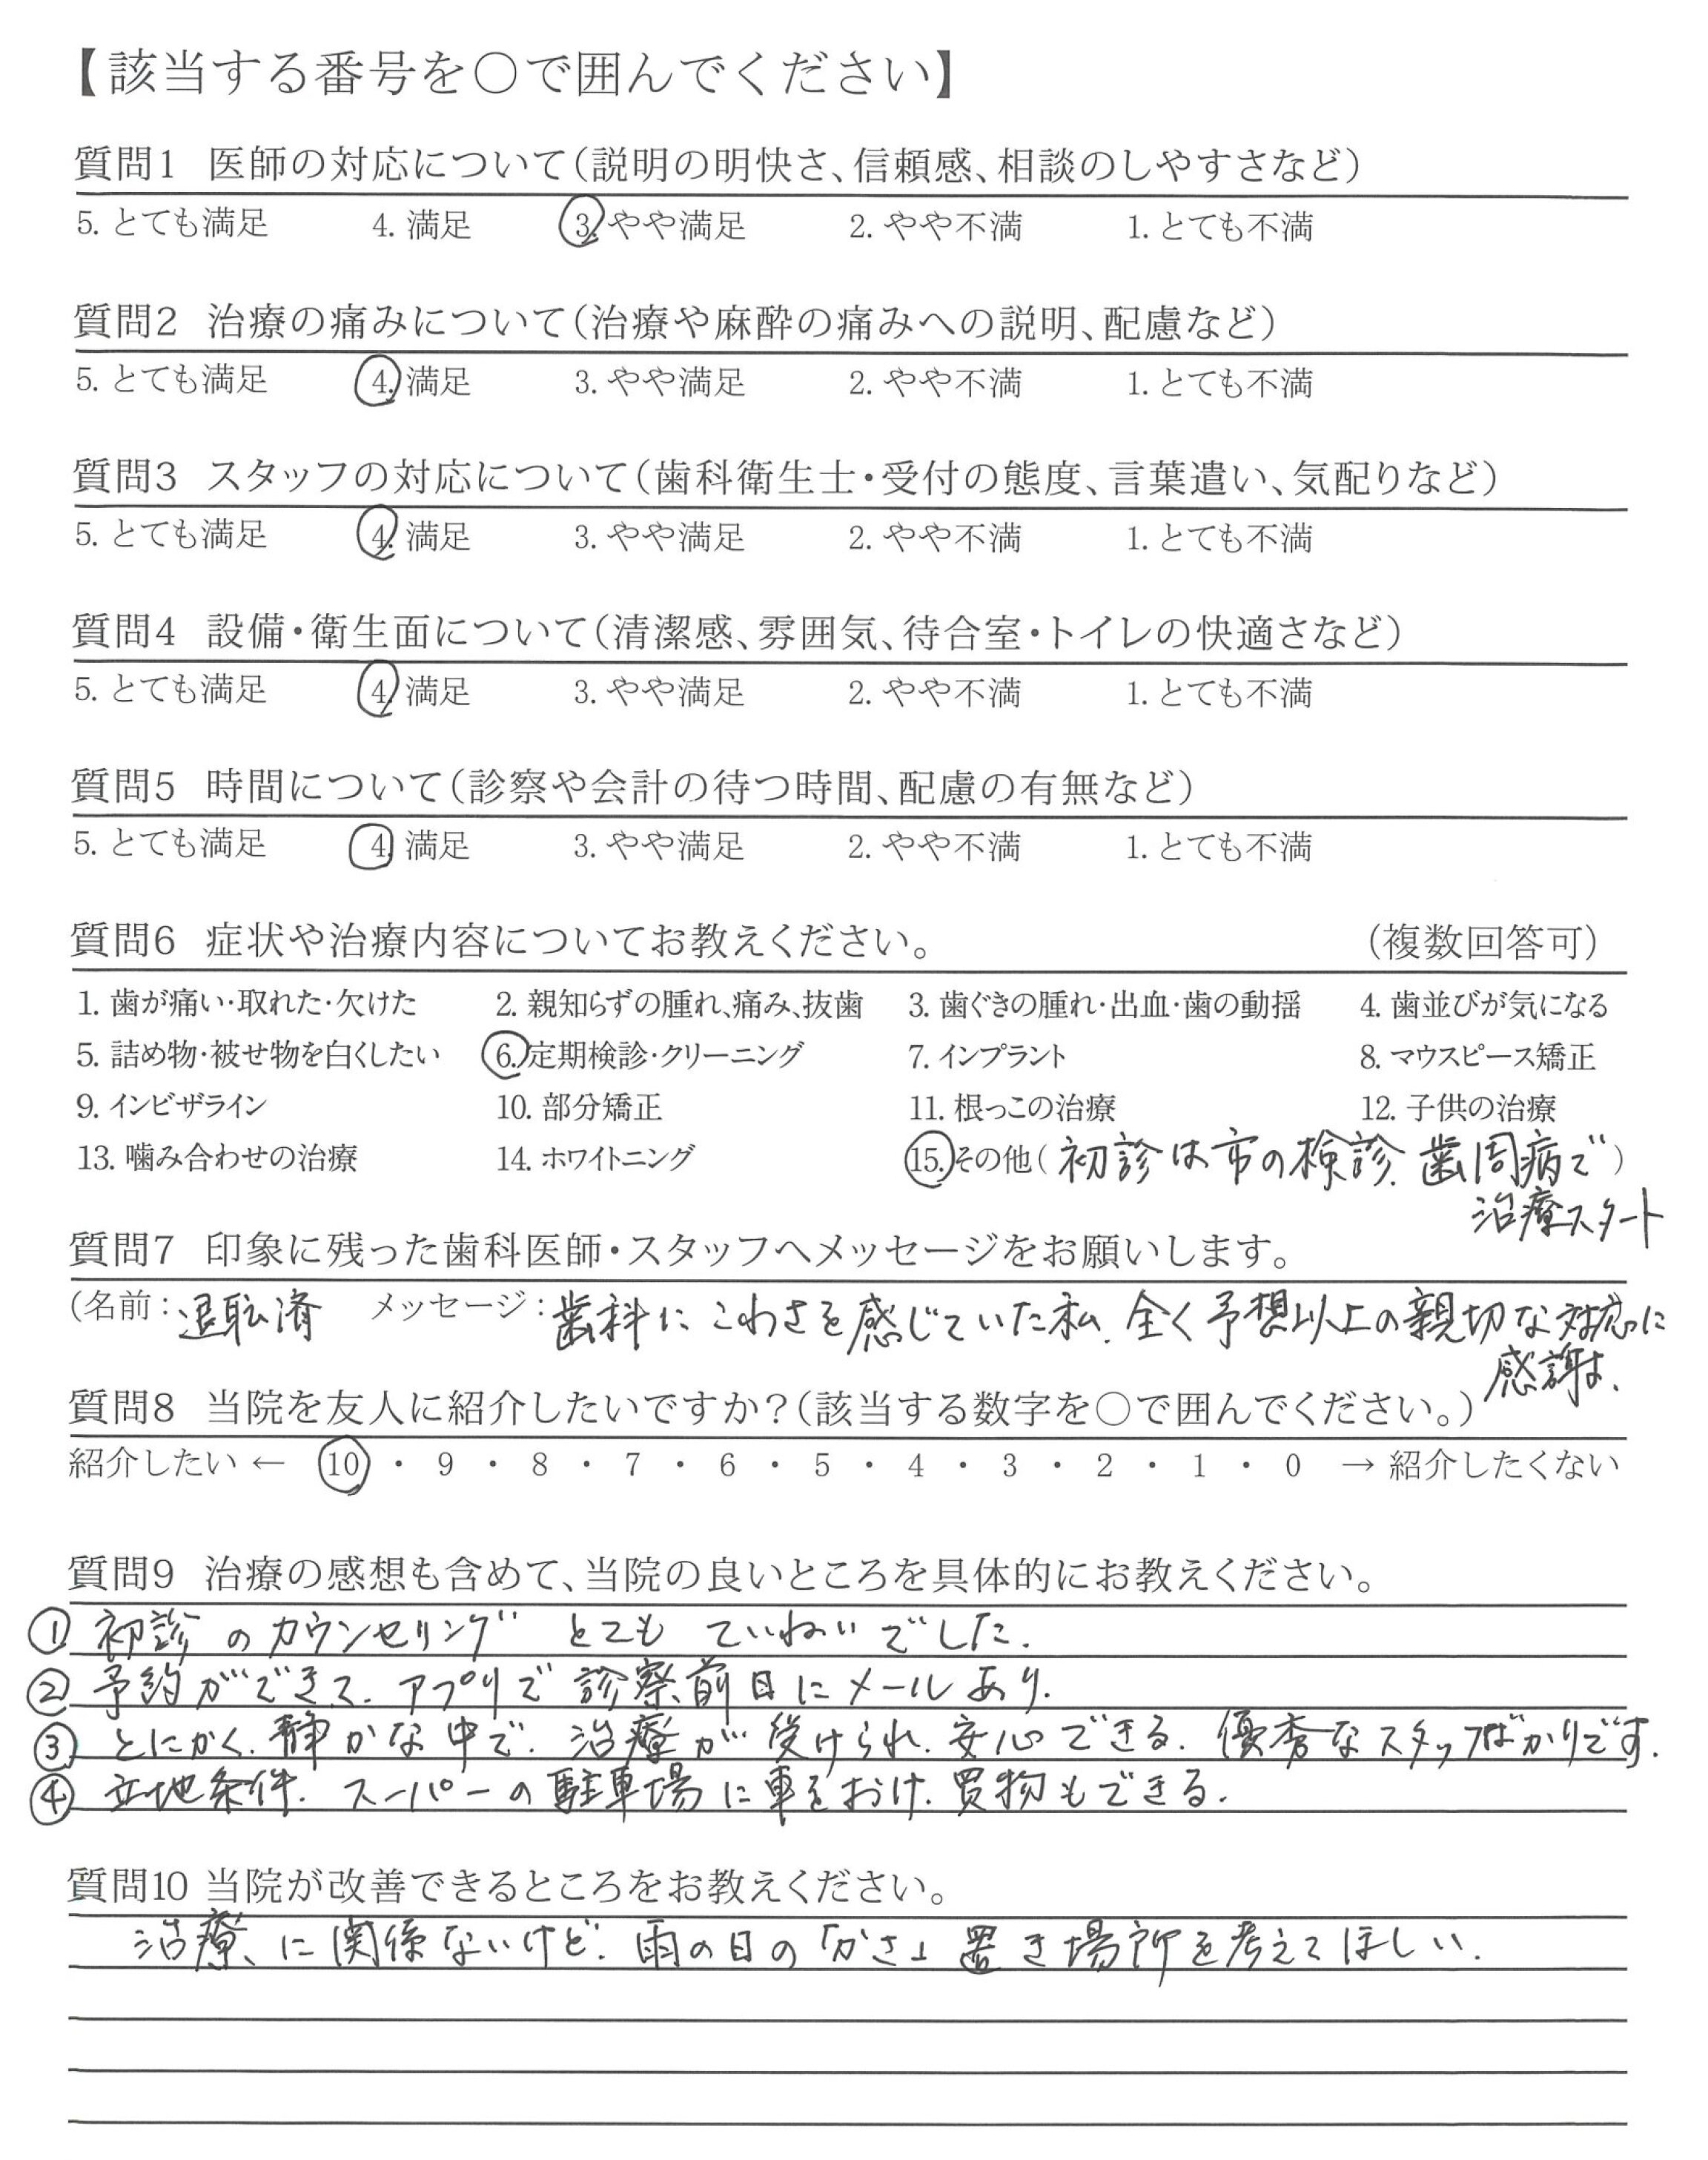 【該当する番号を〇で囲んでください】
質問1 医師の対応について（説明の明快さ、信頼感、相談のしやすさなど）
5. とても満足 4. 満足 3. やや満足 2. やや不満 1. とても不満
質問2 治療の痛みについて（治療や麻酔の痛みへの説明、配慮など）
5. とても満足 4. 満足 3. やや満足 2. やや不満 1. とても不満
質問3 スタッフの対応について（歯科衛生士・受付の態度、言葉遣い、気配りなど）
5. とても満足 4. 満足 3. やや満足 2. やや不満 1. とても不満
質問4 設備・衛生面について（清潔感、雰囲気、待合室・トイレの快適さなど）
5. とても満足 4. 満足 3. やや満足 2. やや不満 1. とても不満
質問5 時間について（診察や会計の待つ時間、配慮の有無など）
5. とても満足 4. 満足 3. やや満足 2. やや不満 1. とても不満
質問6 症状や治療内容についてお教えください。 （複数回答可）
1. 歯が痛い・取れた・欠けた 2. 親知らずの腫れ、痛み、抜歯 3. 歯ぐきの腫れ・出血・歯の動揺 4. 歯並びが気になる
5. 詰め物・被せ物を白くしたい 6. 定期検診・クリーニング 7. インプラント 8. マウスピース矯正
9. インビザライン 10. 部分矯正 11. 根っこの治療 12. 子供の治療
13. 噛み合わせの治療 14. ホワイトニング 15. その他（初診は市の検診、歯周病で）
治療スタート
質問7 印象に残った歯科医師・スタッフへメッセージをお願いします。
（名前：退職済 メッセージ：歯科にこわさを感じていた私、全く予想以上の親切な対応に
感謝
質問8 当院を友人に紹介したいですか？（該当する数字を〇で囲んでください。）
紹介したい ← 10 ・ 9 ・ 8 ・ 7 ・ 6 ・ 5 ・ 4 ・ 3 ・ 2 ・ 1 ・ 0 → 紹介したくない
質問9 治療の感想も含めて、当院の良いところを具体的にお教えください。
① 初診のカウンセリング とても ていねいでした.
② 予約ができて、アプリで診察前日にメールあり.
③ とにかく、静かな中で、治療が受けられ、安心できる. 優秀なスタッフばかりです.
④ 立地条件. スーパーの駐車場に車をおけ、買物もできる.
質問10 当院が改善できるところをお教えください。
治療に関係ないけど、雨の日の「かさ」置き場所を考えてほしい.